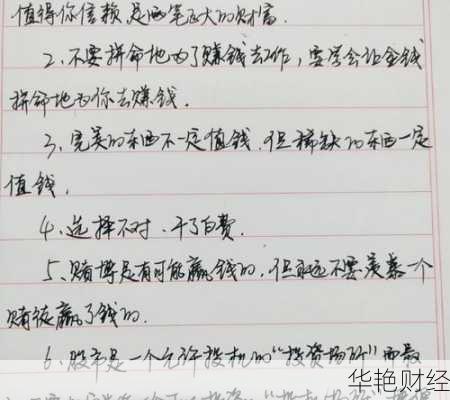 值得你信赖,是两笔巨大的财富.
2、不要拼命地为了赚钱去工作,要学会让金钱
拼命地为你去赚钱.
3、完美的东西不一定值钱.但稀缺的东西一定
值钱.
4、选择不对.干了白费.
5、赌博是有可能赢钱的,但永远不要羡慕一个
赌徒赢了钱的.
6、股市是一个允许投机的“投资场所”而最
华艳财经